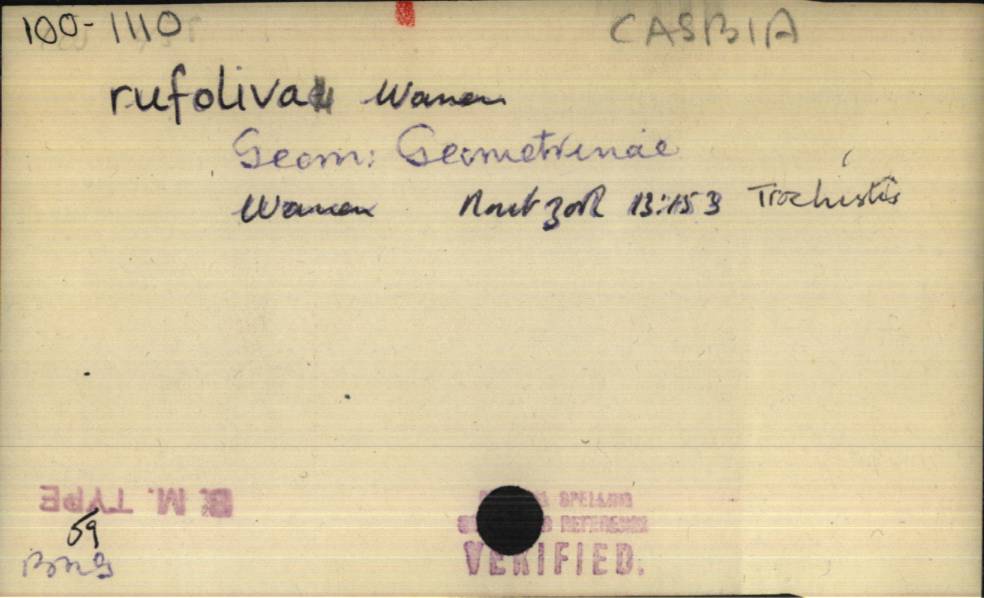 100-1110 CASBIA
rufoliva Warren
Geom: Geometrinae
Warren Novit zool 13:153 Trochistis
B. M. TYPE
SPELLING
REFERENCE
VERIFIED.